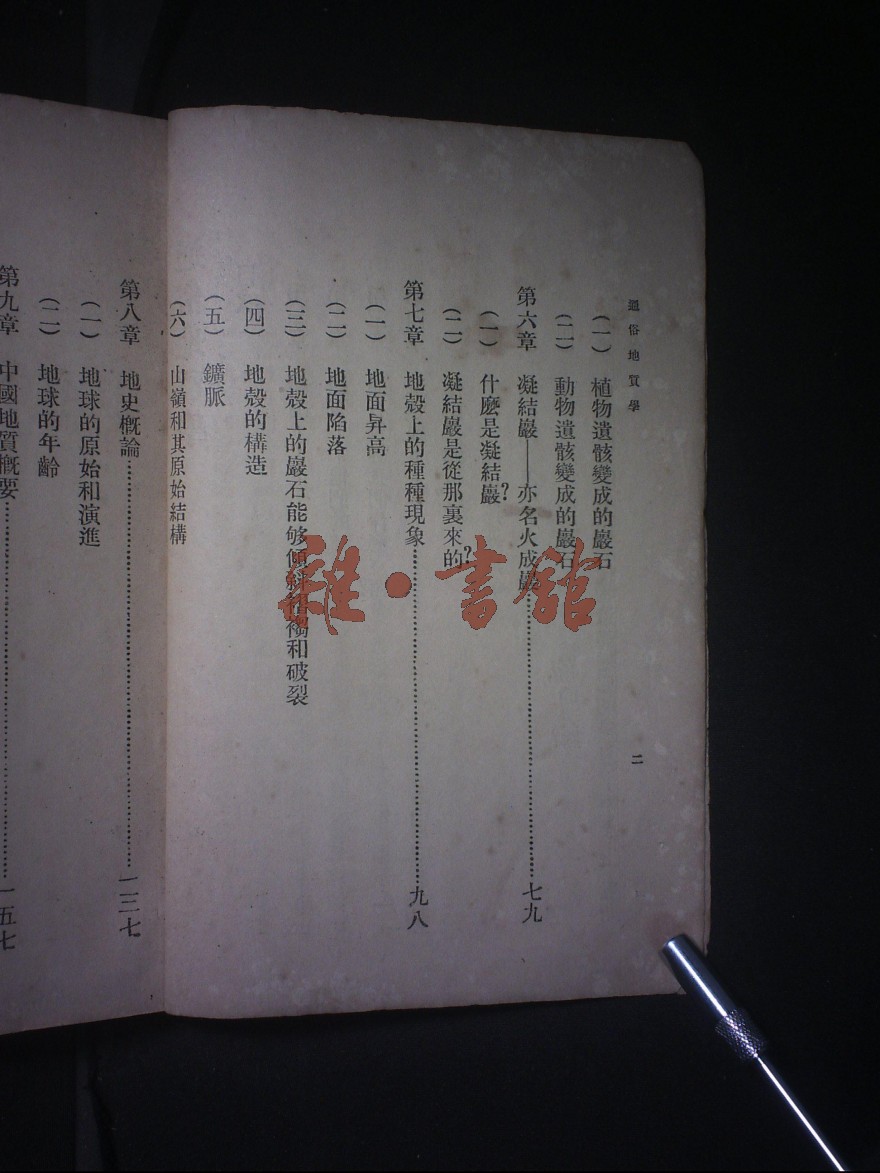 通俗地質學
二
（一）植物遺骸變成的巖石
（二）動物遺骸變成的巖石
第六章 凝結巖——亦名火成巖……七九
（一）什麽是凝結巖？
（二）凝結巖是從那裏來的？
第七章 地殼上的種種現象……九八
（一）地面昇高
（二）地面陷落
（三）地殼上的巖石能够傾斜褶襉和破裂
（四）地殼的構造
（五）鑛脈
（六）山嶺和其原始結構
第八章 地史概論……一三七
（一）地球的原始和演進
（二）地球的年齡
第九章 中國地質概要……一五七
雜·書館